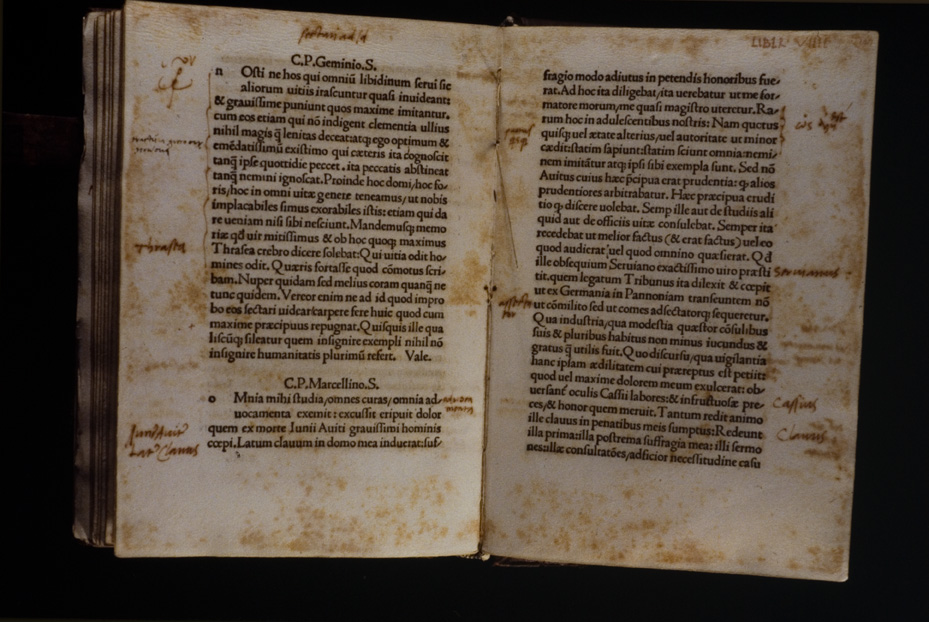 C.P.Geminio.S.
n Osti ne hos qui omniũ libidinum serui sic
aliorum uitiis irascuntur quasi inuideant:
& grauissime puniunt quos maxime imitantur.
cum eos etiam qui nõ indigent clementia ullius
nihil magis q̃ lenitas deceat:atq; ego optimum &
emẽdatissimũ existimo qui cæteris ita ignoscit
tanq̃ ipse quottidie peccet. ita peccatis abstineat
tanq̃ nemini ignoscat. Proinde hoc domi/hoc fo-
ris/hoc in omni uitæ genere teneamus/ut nobis
implacabiles simus exorabiles istis: etiam qui da
re ueniam nisi sibi nesciunt. Mandemusq; memo
riæ qd̃ uir mitissimus & ob hoc quoq; maximus
Thrasea crebro dicere solebat: Qui uitia odit ho-
mines odit. Quæris fortasse quod cõmotus scri-
bam. Nuper quidam sed melius coram quanq̃ ne
tunc quidem. Vereor enim ne ad id quod impro
bo eos sectari uidear:carpere fere huic quod cum
maxime præcipuus repugnat. Quisquis ille qua
liscũq; sileatur quem insignire exempli nihil nõ
insignire humanitatis plurimũ refert. Vale.
C.P.Marcellino.S.
o Mnia mihi studia/omnes curas/omnia ad-
uocamenta exemit: excussit eripuit dolor
quem ex morte Junii Auiti grauissimi hominis
cœpi. Latum clauum in domo mea induerat:suf-
Thrasea
Lat. Clauus
LIBER VIIII
fragio modo adiutus in petendis honoribus fue-
rat. Ad hoc ita diligebat/ita uerebatur ut me for-
matore morum/me quasi magistro uteretur. Ra-
rum hoc in adulescentibus nostris: Nam quotus
quisq; uel ætate alterius/uel autoritate ut minor
cædit:statim sapiunt:statim sciunt omnia:nemi-
nem imitãtur atq; ipsi sibi exempla sunt. Sed nõ
Auitus cuius hæc p̃cipua erat prudentia: q; alios
prudentiores arbitrabatur. Hæc præcipua erudi
tio q; discere uolebat. Semp ille aut de studiis ali
quid aut de officiis uitæ consulebat. Semper ita
recedebat ut melior factus (& erat factus) uel eo
quod audierat uel quod omnino quæsierat. Qd̃
ille obsequium Seruiano exactissimo uiro præsti
tit. quem legatum Tribunus ita dilexit & cœpit
ut ex Germania in Pannoniam transeuntem nõ
ut cõmilito sed ut comes adsectatorq; sequeretur.
Qua industria/qua modestia quæstor cõsulibus
suis & pluribus habitus non minus iucundus &
gratus q̃ utilis fuit. Quo discursu/qua uigilantia
hanc ipsam ædilitatem cui præreptus est petiit:
quod uel maxime dolorem meum exulcerat: ob-
uersant̃ oculis Cassii labores:& infructuosæ pre-
ces/& honor quem meruit. Tantum redit animo
ille clauus in penatibus meis sumptus: Redeunt
illa prima:illa postrema suffragia mea: illi sermo
nes:illæ consultatões/adficior necessitudine casu
Seruianus
Cassius
Clauus